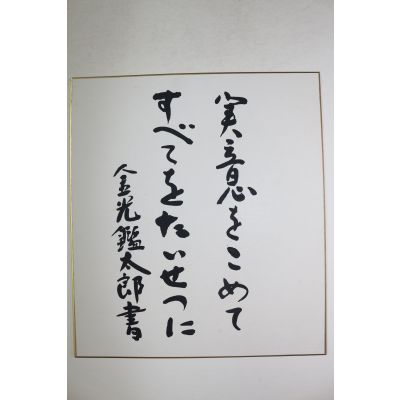 実意をこめて
すべてをたいせつに
金光鑑太郎書